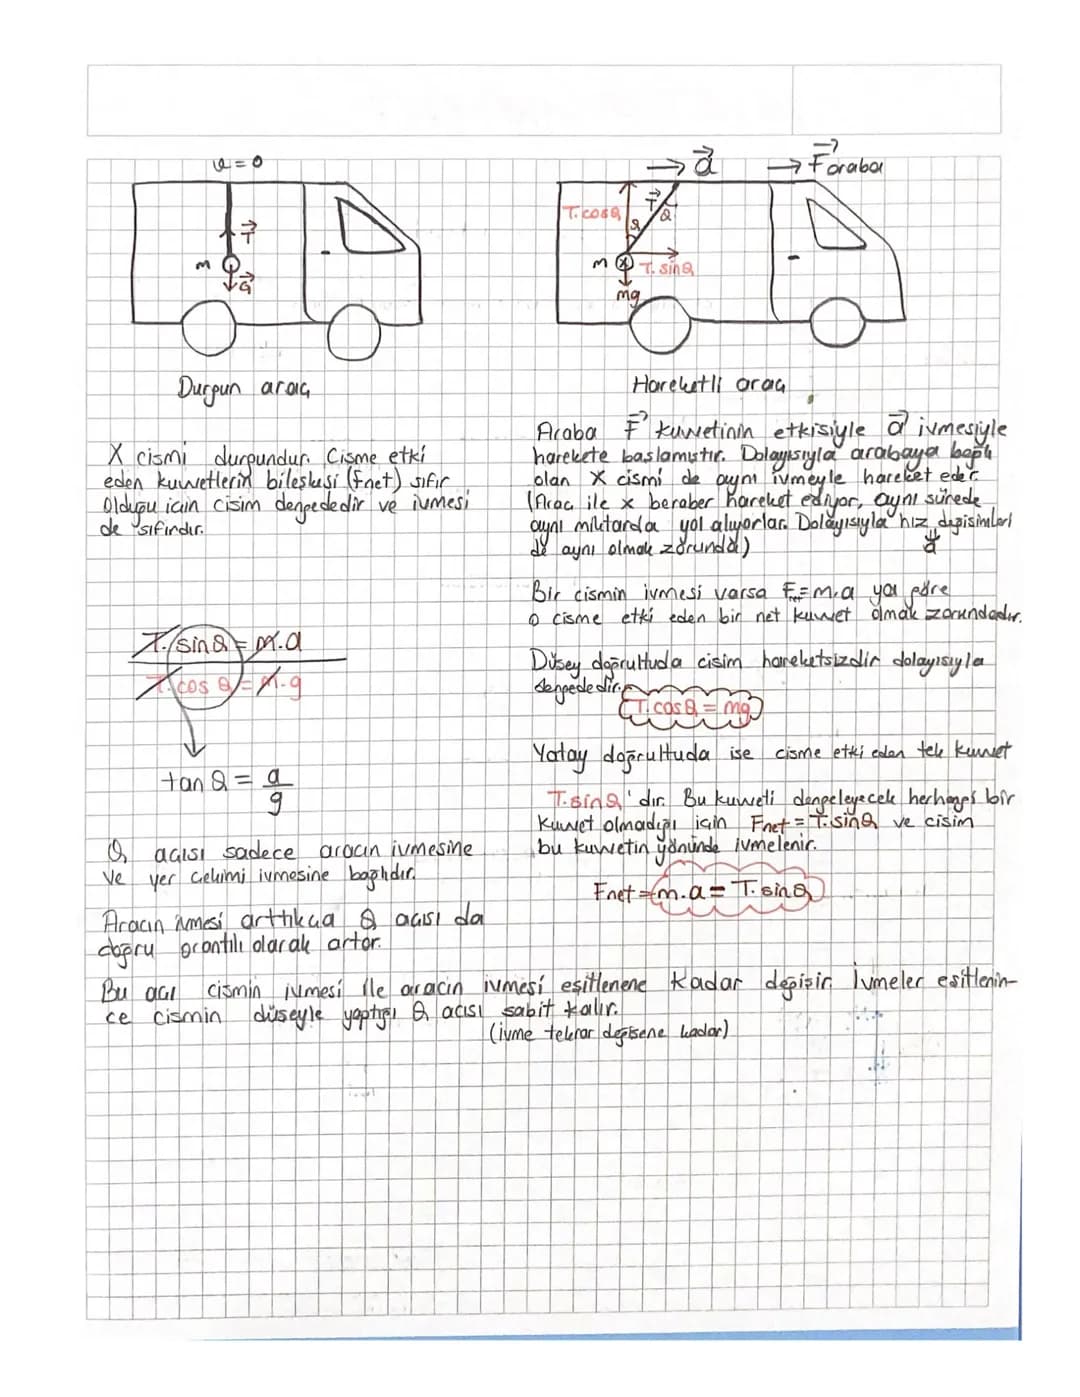 v = 0
T
m
G
Durgun araç
X cismi durgundur. Cisme etki
eden kuvvetlerin bileşkesi (Fnet) sıfır
olduğu için cisim dengededir ve ivmesi
de sıfırdır.
T. sinθ = m.a
T. cos θ = m.g
tan θ = a/g
θ açısı sadece aracın ivmesine
ve yer çekimi ivmesine bağlıdır.
Aracın ivmesi arttıkça θ açısı da
doğru orantılı olarak artar.
a
Faraba
T.cosθ
T
θ
θ
m
x
T.sinθ
mg
Hareketli araç
Araba F kuvvetinin etkisiyle a ivmesiyle
harekete başlamıştır. Dolayısıyla arabaya bağlı
olan X cismi de aynı ivmeyle hareket eder.
(Araç ile x beraber hareket ediyor, aynı sürede
aynı miktarda yol alıyorlar. Dolayısıyla hız değişimleri
de aynı olmak zorunda)
a
Bir cismin ivmesi varsa Fnet=m.a ya göre
o cisme etki eden bir net kuvvet olmak zorundadır.
Düşey doğrultuda cisim hareketsizdir dolayısıyla
dengededir.
T.cosθ = mg
Yatay doğrultuda ise cisme etki eden tek kuvvet
T.sinθ'dır. Bu kuvveti dengeleyecek herhangi bir
kuvvet olmadığı için Fnet = T.sinθ ve cisim
bu kuvvetin yönünde ivmelenir.
Fnet = m.a = T.sinθ
Bu açı cismin ivmesi ile aracın ivmesi eşitlenene kadar değişir. İvmeler eşitlenin-
ce cismin düşeyle yaptığı θ açısı sabit kalır.
(ivme tekrar değişene kadar)